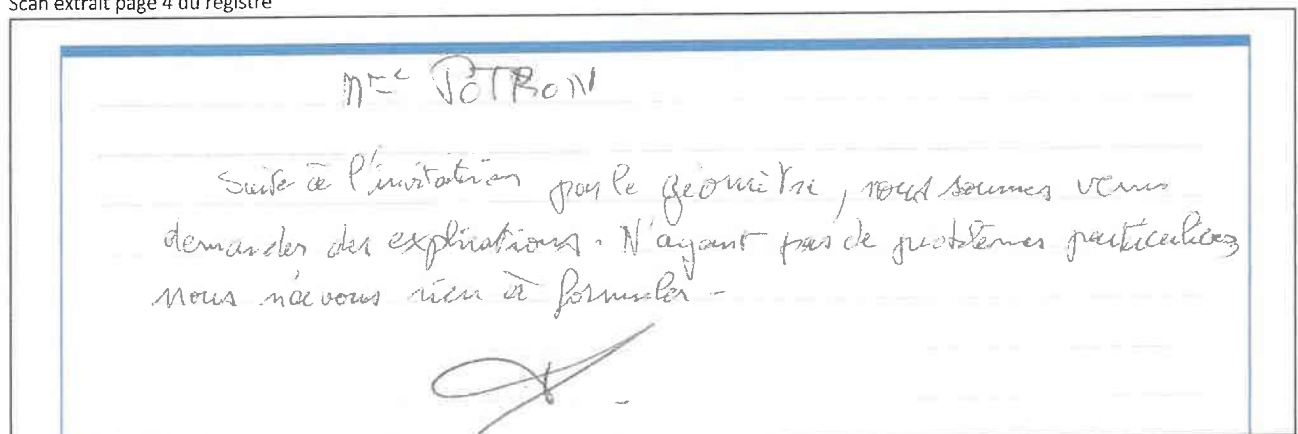 Scan extrait page 4 du registre
Mme POTRON
Suite à l'invitation par le géomètre, nous sommes venus
demander des explications. N'ayant pas de problèmes particuliers
nous n'avons rien à formuler -